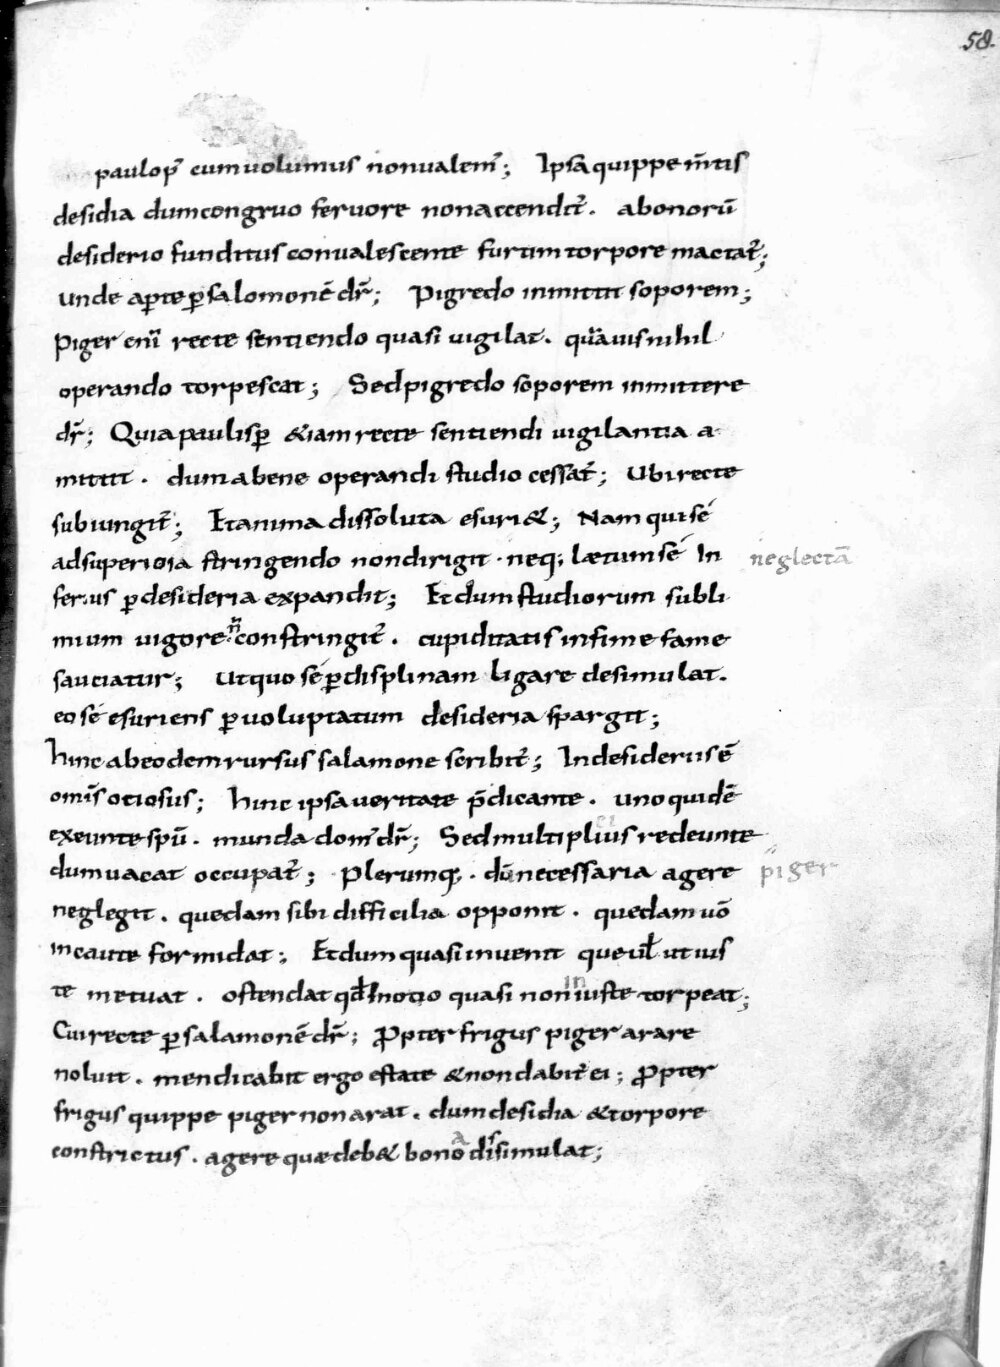 58.
paulop᷒ cum volumus non valem᷒; Ipsa quippe m̄tis
desidia dum congruo fervore non accendit̄. a bonorū
desiderio funditus convalescente furtim torpore mactat̄;
unde apte ꝑ salomonē dr̄; Pigredo inmittit soporem;
Piger enī recte sentiendo quasi vigilat. quāvis nihil
operando torpescat; Sed pigredo soporem inmittere
dr̄; Quia paulisꝑ &iam recte sentiendi vigilantia a
mittit. dum a bene operandi studio cessat̄; Ubi recte
subiungit̄; Et anima dissoluta esuri&; Nam qui sé
ad superiora stringendo non dirigit. neq; lætum sé In neglectā
ferius ꝑ desideria expandit; Et dum studiorum subli
mium vigore n̄ constringit̄. cupiditatis infime fame
sauciatur; Ut quo sé ꝑ displinam ligare desimulat.
eo sé esuriens ꝑ voluptatum desideria spargit;
hinc ab eodem rursus salamone scribit̄; In desideriis ē
omīs otiosus; hinc ipsa veritate p̄dicante. uno quidē
exeunte spū. munda dom᷒ dr̄; Sed multiplius ci redeunte
dum vacat occupat̄; Plerumq;. dū necessaria agere piger
neglegit. quedam sibi difficilia opponit. quedam uō
incaute formidat; Et dum quasi invenit que uł ut ius
te metuat. ostendat qđ Inotio quasi non in iuste torpeat;
Cui recte ꝑ salamonē dr̄; Ꝓpter frigus piger arare
noluit. mendicabit ergo estate & non dabit̄ ei; Ꝓpter
frigus quippe piger non arat. dum desidia & torpore
constrictus. agere quæ deb& bono a dissimulat;